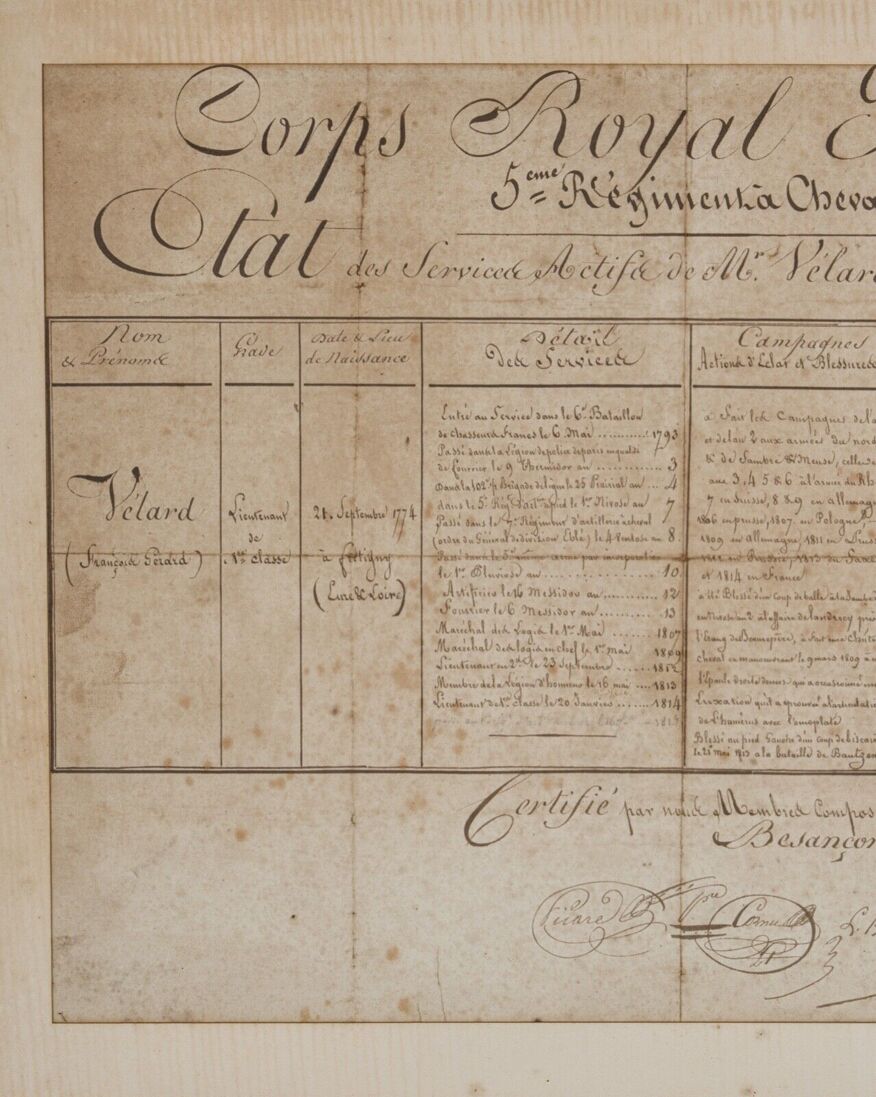 Corps Royal
5eme Régiment à Cheva
Etat des Services Actifs de Mr. Vélard
Nom
& Prénoms
Grade
Date & Lieu
de Naissance
Détail
Des Services
Campagnes
Actions d'Eclat et Blessures
Vélard
(François Gérard)
Lieutenant
de
1re Classe
21. Septembre 1774
à
(Eure & Loire)
Entré au Service dans le 6e Bataillon
de chasseurs Francs le 6 Mai .......... 1793
Passé dans la Légion de police de paris en qualité
de fourrier le 9 Thermidor an .......... 3
Dans la 102e ½ Brigade de ligne le 25 Prairial an .... 4
dans le 5e Régt d'artie à pied le 1er Nivose an 7
Passé dans le 7e Régiment d'artillerie à cheval
(ordre du Général de division Eblé) le 4 Ventose an 8.
Passé dans le 5eme par incorporation
le 1er Pluviose an .......... 10
Artificier le 16 Messidor an .......... 12
Fourrier le 6 Messidor an .......... 13
Maréchal des Logis le 1er Mai .......... 1807
Maréchal des logis en chef le 1er mai 1809
Lieutenant en 2d le 23 Septembre ...... 1812
Membre de la Légion d'honneur le 16 mai .... 1813
Lieutenant de 1re classe le 20 Janvier ...... 1814
à Fait les Campagnes de l'a
et de l'an 2 aux armées du nord
& de Sambre & Meuse, celles de
aux 3, 4, 5 & 6 à l'armée du Rh
7 en Suisse, 8 & 9 en allemagn
1806 en prusse, 1807. en Pologne,
1809 en Allemagne, 1811 en Prus
1812 en Russie, 1813 en Saxe
et 1814 en France
a été Blessé d'un Coup de balle à la Jambe
an 2 à l'affaire de landrecy
l'Etang de Beaurepaire, à fait une Chute
cheval en manoeuvrant le 9 mars 1809
l'Epaule droite qui a occasionné
Luxation qu'il a éprouvé à l'articulation
de l'humérus avec l'omoplate
Blessé au pied Gauche d'un coup de biscaïen
le 21 mai 1813 à la bataille de Bautzen
Certifié par nous Membres Compos
Besançon